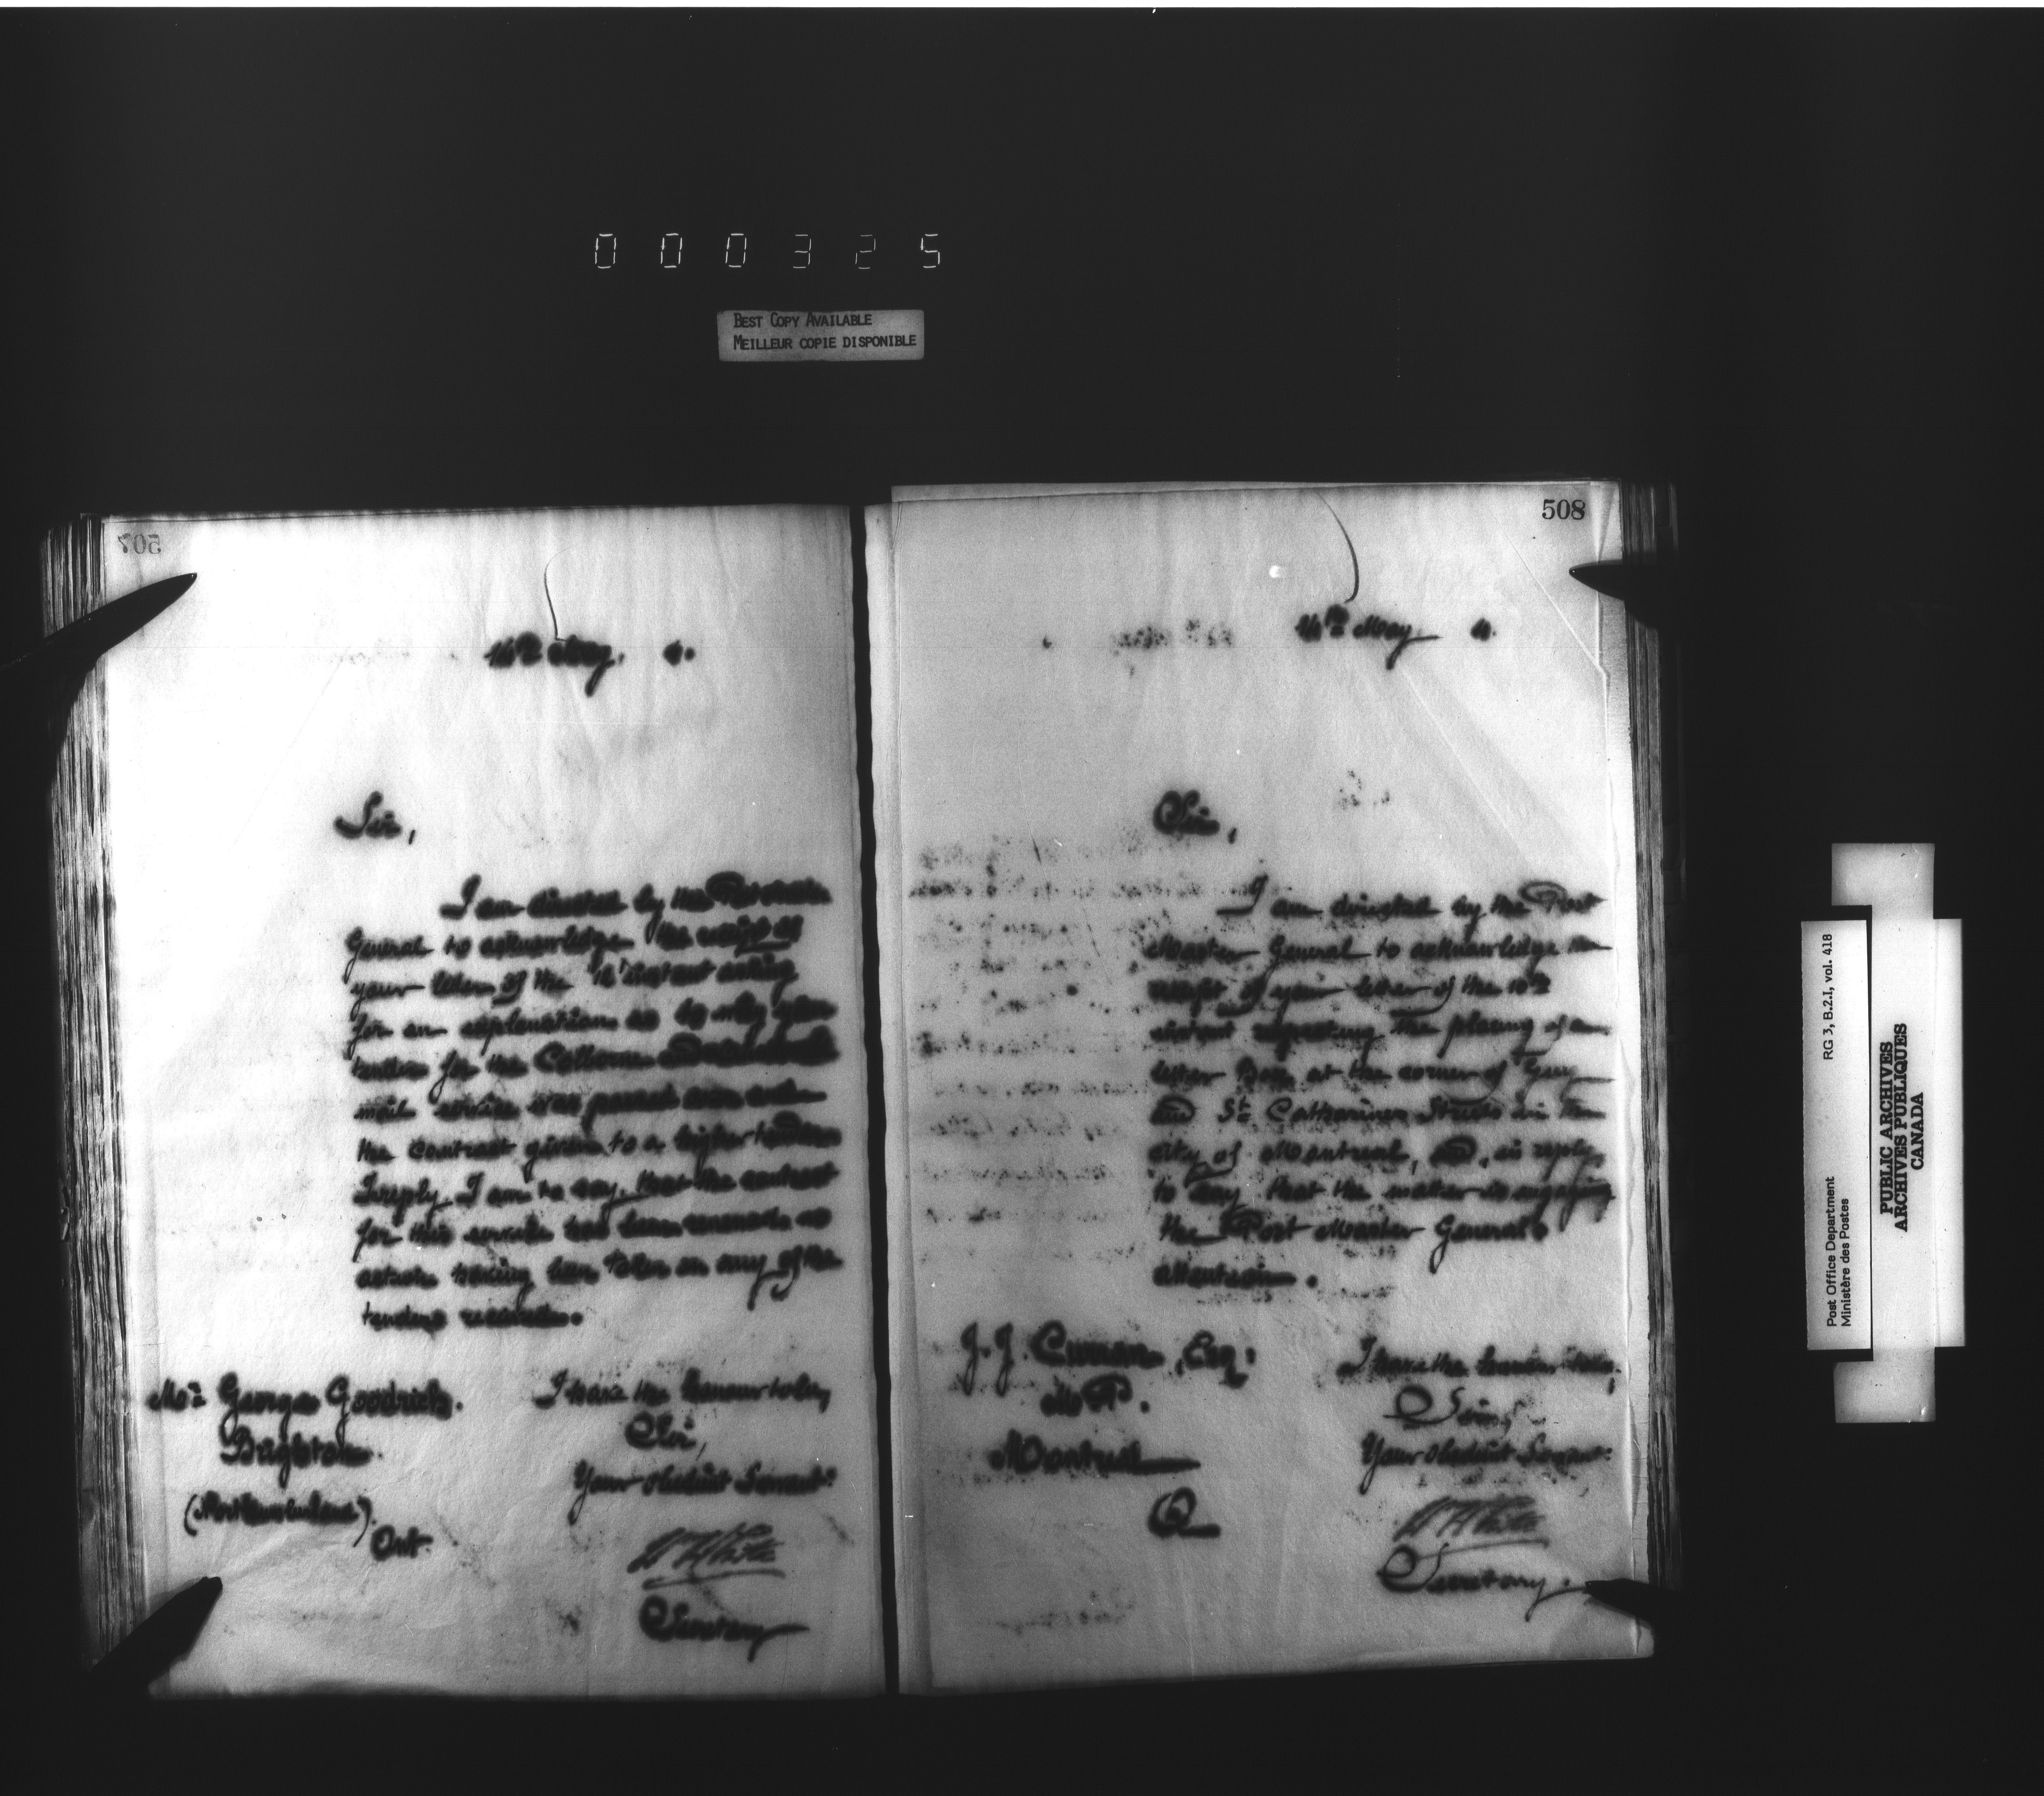 000325
BEST COPY AVAILABLE
MEILLEUR COPIE DISPONIBLE
507
14th May. 4.
Sir,
I am directed by the Postmaster
General to acknowledge the receipt of
your letter of the instant asking
for an explanation as to why your
tender for the Colborne
mail service was passed over and
the contract given to a higher tenderer
In reply I am to say, that the contract
for this service has been renewed no
action having been taken on any of the
tenders received.
I have the honour to be,
Sir,
Your obedient Servant
Secretary
Mr. George Goodrich.
Brighton
(Northumberland)
Ont.
508
14th May 4.
Sir,
I am directed by the Post
Master General to acknowledge the
receipt of your letter of the 10th
instant respecting the placing of a
letter Box at the corner of Guy
and St. Catherines Streets in the
city of Montreal, and, in reply,
to say that the matter is engaging
the Post Master General's
attention.
I have the honour to be,
Sir,
Your obedient Servant
Secretary.
J. J. Curran, Esq:
M.P.
Montreal
Q
RG 3, B.2.I, vol. 418
Post Office Department
Ministère des Postes
PUBLIC ARCHIVES
ARCHIVES PUBLIQUES
CANADA